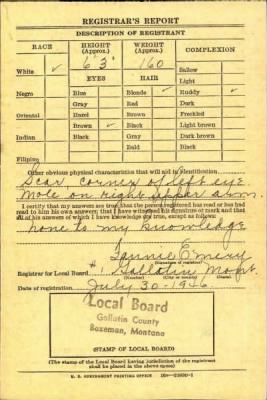 REGISTRAR'S REPORT
DESCRIPTION OF REGISTRANT
RACE HEIGHT (Approx.) WEIGHT (Approx.) COMPLEXION
White ✓ 6' 3" 160 Sallow
EYES HAIR Light
Negro Blue Blonde ✓ Ruddy ✓
Gray Red Dark
Oriental Hazel Brown Freckled
Brown ✓ Black Light brown
Indian Black Gray Dark brown
Bald Black
Filipino
Other obvious physical characteristics that will aid in identification
Scar corner of left eye
Mole on right upper arm.
I certify that my answers are true; that the person registered has read or has had
read to him his own answers; that I have witnessed his signature or mark and that
all of his answers of which I have knowledge are true, except as follows:
none to my knowledge
Fannie Emery
(Signature of registrar)
Registrar for Local Board #1 Gallatin Mont.
Date of registration July 30-1946
Local Board
Gallatin County
Bozeman, Montana
(STAMP OF LOCAL BOARD)
(The stamp of the Local Board having jurisdiction of the registrant
shall be placed in the above space.)
U. S. GOVERNMENT PRINTING OFFICE